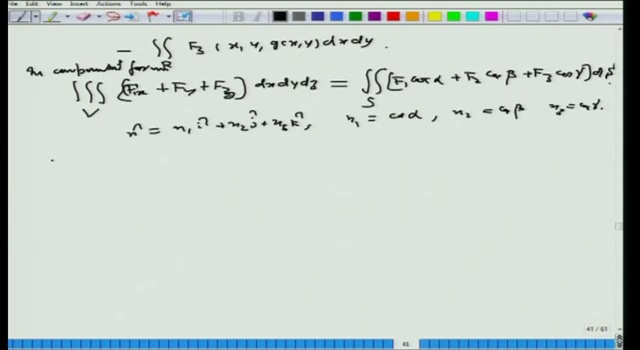 Edit View Insert Actions Tools Help
− ∬_R F₃ (x, y, g(x, y)) dx dy.
In component form
∭_V (F₁ₓ + F₂ᵧ + F₃z) dx dy dz = ∬_S [F₁ cos α + F₂ cos β + F₃ cos γ] dS
n̂ = n₁ î + n₂ ĵ + n₃ k̂, n₁ = cos α, n₂ = cos β n₃ = cos γ.
41 / 61
41